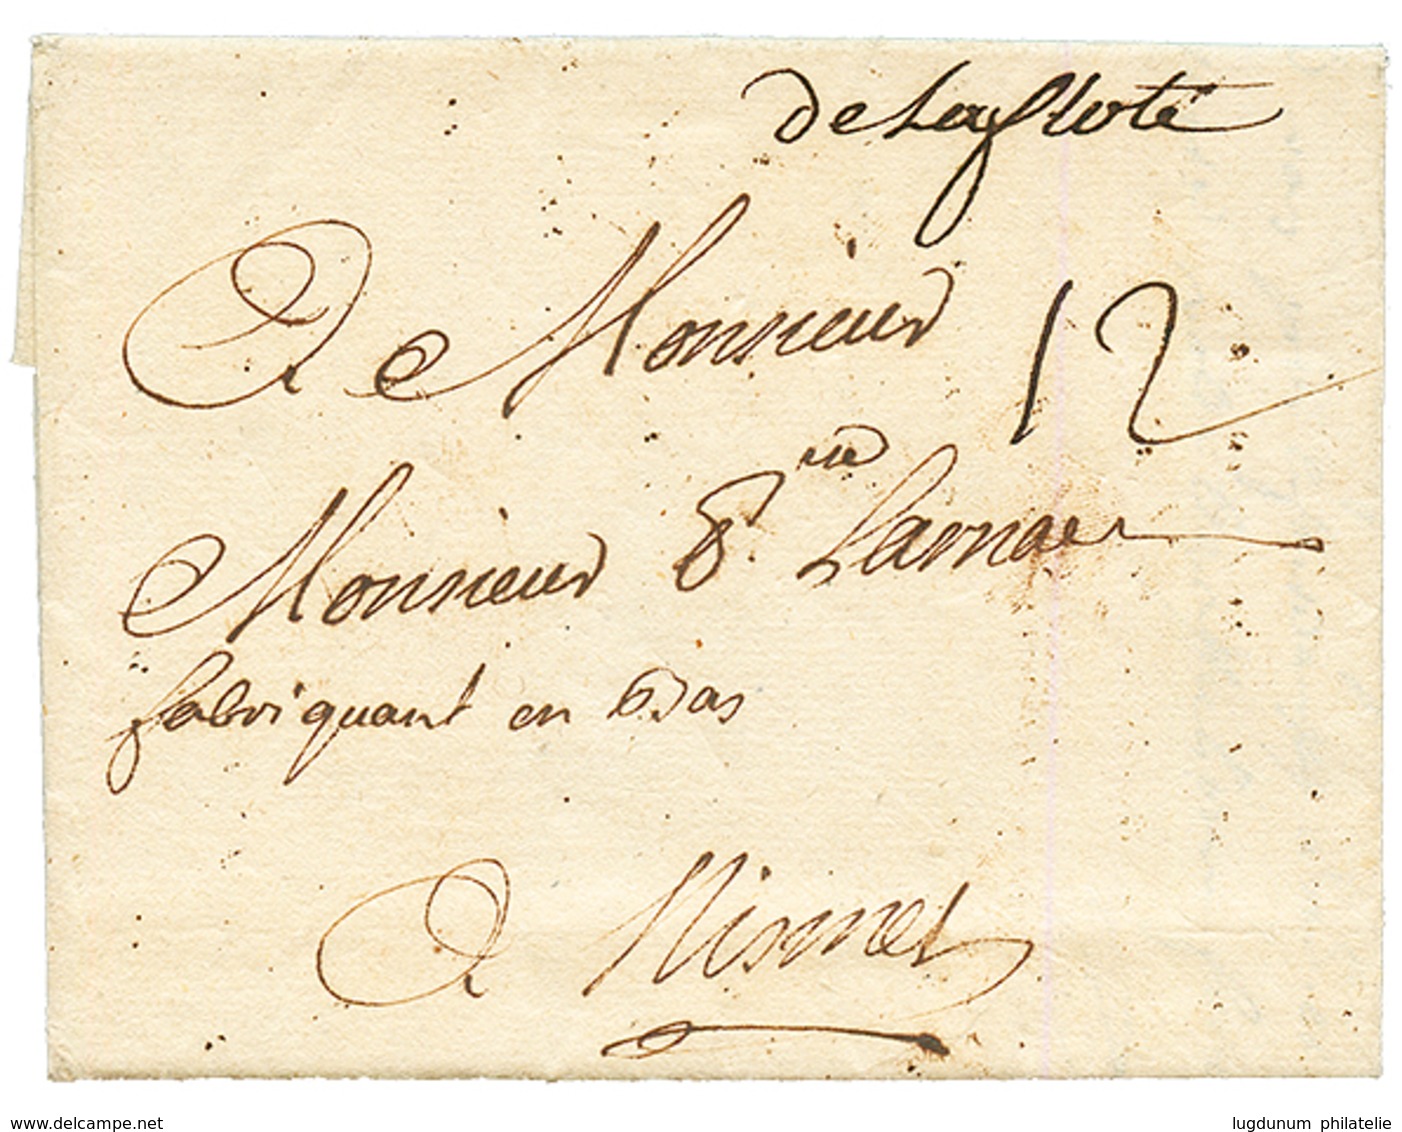 de La flote
A Monsieur
12
Monsieur
fabriquant en bas
A Nismes
www.delcampe.net
lugdunum philatelie